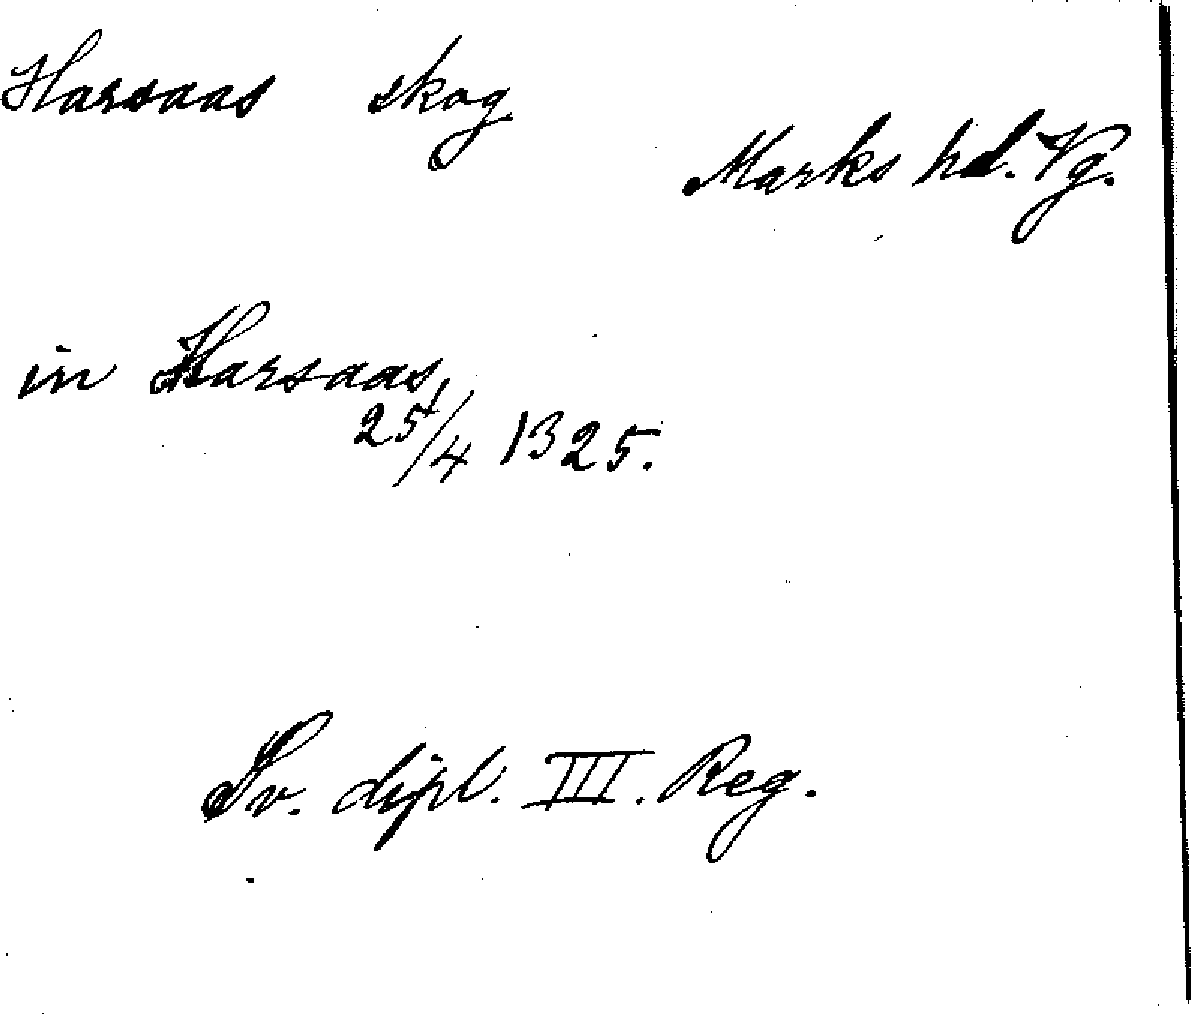 Harsaas skog
Marks hd. Vg.
in Harsaas,
25/4 1325.
Sv. dipl. III. Reg.